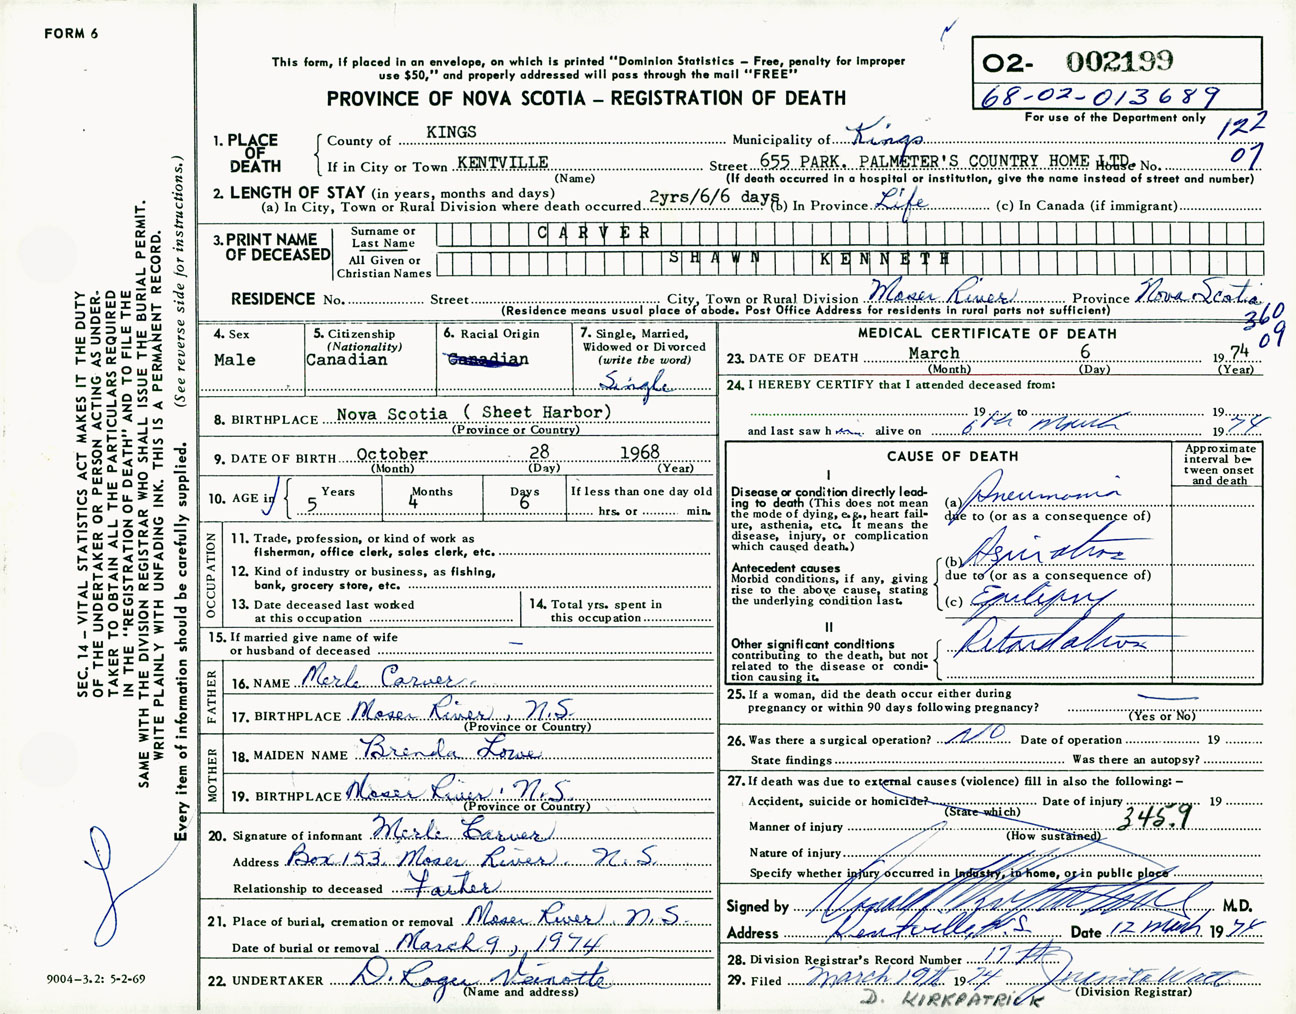 FORM 6
This form, if placed in an envelope, on which is printed "Dominion Statistics – Free, penalty for improper
use $50," and properly addressed will pass through the mail "FREE"
PROVINCE OF NOVA SCOTIA – REGISTRATION OF DEATH
O2- 002199
68-02-013689
For use of the Department only
122
07
1. PLACE OF DEATH
County of KINGS Municipality of Kings
If in City or Town KENTVILLE Street 655 PARK. PALMETER'S COUNTRY HOME LTD. House No.
(Name) (If death occurred in a hospital or institution, give the name instead of street and number)
2. LENGTH OF STAY (in years, months and days)
(a) In City, Town or Rural Division where death occurred 2yrs/6/6 days (b) In Province Life (c) In Canada (if immigrant)
3. PRINT NAME OF DECEASED
Surname or Last Name CARVER
All Given or Christian Names SHAWN KENNETH
RESIDENCE No. Street City, Town or Rural Division Moser River Province Nova Scotia
(Residence means usual place of abode. Post Office Address for residents in rural parts not sufficient)
360
09
4. Sex
Male
5. Citizenship
(Nationality)
Canadian
6. Racial Origin
Canadian
7. Single, Married,
Widowed or Divorced
(write the word)
Single
8. BIRTHPLACE Nova Scotia ( Sheet Harbor)
(Province or Country)
9. DATE OF BIRTH October 28 1968
(Month) (Day) (Year)
10. AGE in Years 5 Months 4 Days 6 If less than one day old
hrs. or min.
OCCUPATION
11. Trade, profession, or kind of work as
fisherman, office clerk, sales clerk, etc.
12. Kind of industry or business, as fishing,
bank, grocery store, etc.
13. Date deceased last worked
at this occupation
14. Total yrs. spent in
this occupation
15. If married give name of wife
or husband of deceased –
FATHER
16. NAME Merle Carver
17. BIRTHPLACE Moser River, N.S.
(Province or Country)
MOTHER
18. MAIDEN NAME Brenda Lowe
19. BIRTHPLACE Moser River, N.S.
(Province or Country)
20. Signature of informant Merle Carver
Address Box 153 Moser River, N.S.
Relationship to deceased Father
21. Place of burial, cremation or removal Moser River N.S.
Date of burial or removal March 9, 1974
22. UNDERTAKER D. Roger Veinotte
(Name and address)
MEDICAL CERTIFICATE OF DEATH
23. DATE OF DEATH March 6 1974
(Month) (Day) (Year)
24. I HEREBY CERTIFY that I attended deceased from:
19 to 19
and last saw h alive on 6th March 1974
CAUSE OF DEATH
Approximate
interval be-
tween onset
and death
I
Disease or condition directly lead-
ing to death (This does not mean
the mode of dying, e.g., heart fail-
ure, asthenia, etc. It means the
disease, injury, or complication
which caused death.)
(a) Pneumonia
due to (or as a consequence of)
(b) Aspiration
due to (or as a consequence of)
(c) Epilepsy
Antecedent causes
Morbid conditions, if any, giving
rise to the above cause, stating
the underlying condition last.
II
Other significant conditions
contributing to the death, but not
related to the disease or condi-
tion causing it.
Retardation
25. If a woman, did the death occur either during
pregnancy or within 90 days following pregnancy? —
(Yes or No)
26. Was there a surgical operation? NO Date of operation 19
State findings Was there an autopsy?
27. If death was due to external causes (violence) fill in also the following: –
Accident, suicide or homicide? Date of injury 19
(State which)
Manner of injury 345.9
(How sustained)
Nature of injury
Specify whether injury occurred in industry, in home, or in public place
Signed by M.D.
Address Kentville N.S. Date 12 March 1974
28. Division Registrar's Record Number 17th
29. Filed March 19th 1974 Juanita Watt
(Division Registrar)
D. KIRKPATRICK
SEC. 14 – VITAL STATISTICS ACT MAKES IT THE DUTY
OF THE UNDERTAKER OR PERSON ACTING AS UNDER-
TAKER TO OBTAIN ALL THE PARTICULARS REQUIRED
IN THE "REGISTRATION OF DEATH" AND TO FILE THE
SAME WITH THE DIVISION REGISTRAR WHO SHALL ISSUE THE BURIAL PERMIT.
WRITE PLAINLY WITH UNFADING INK. THIS IS A PERMANENT RECORD.
Every item of information should be carefully supplied. (See reverse side for instructions.)
9004–3.2: 5-2-69